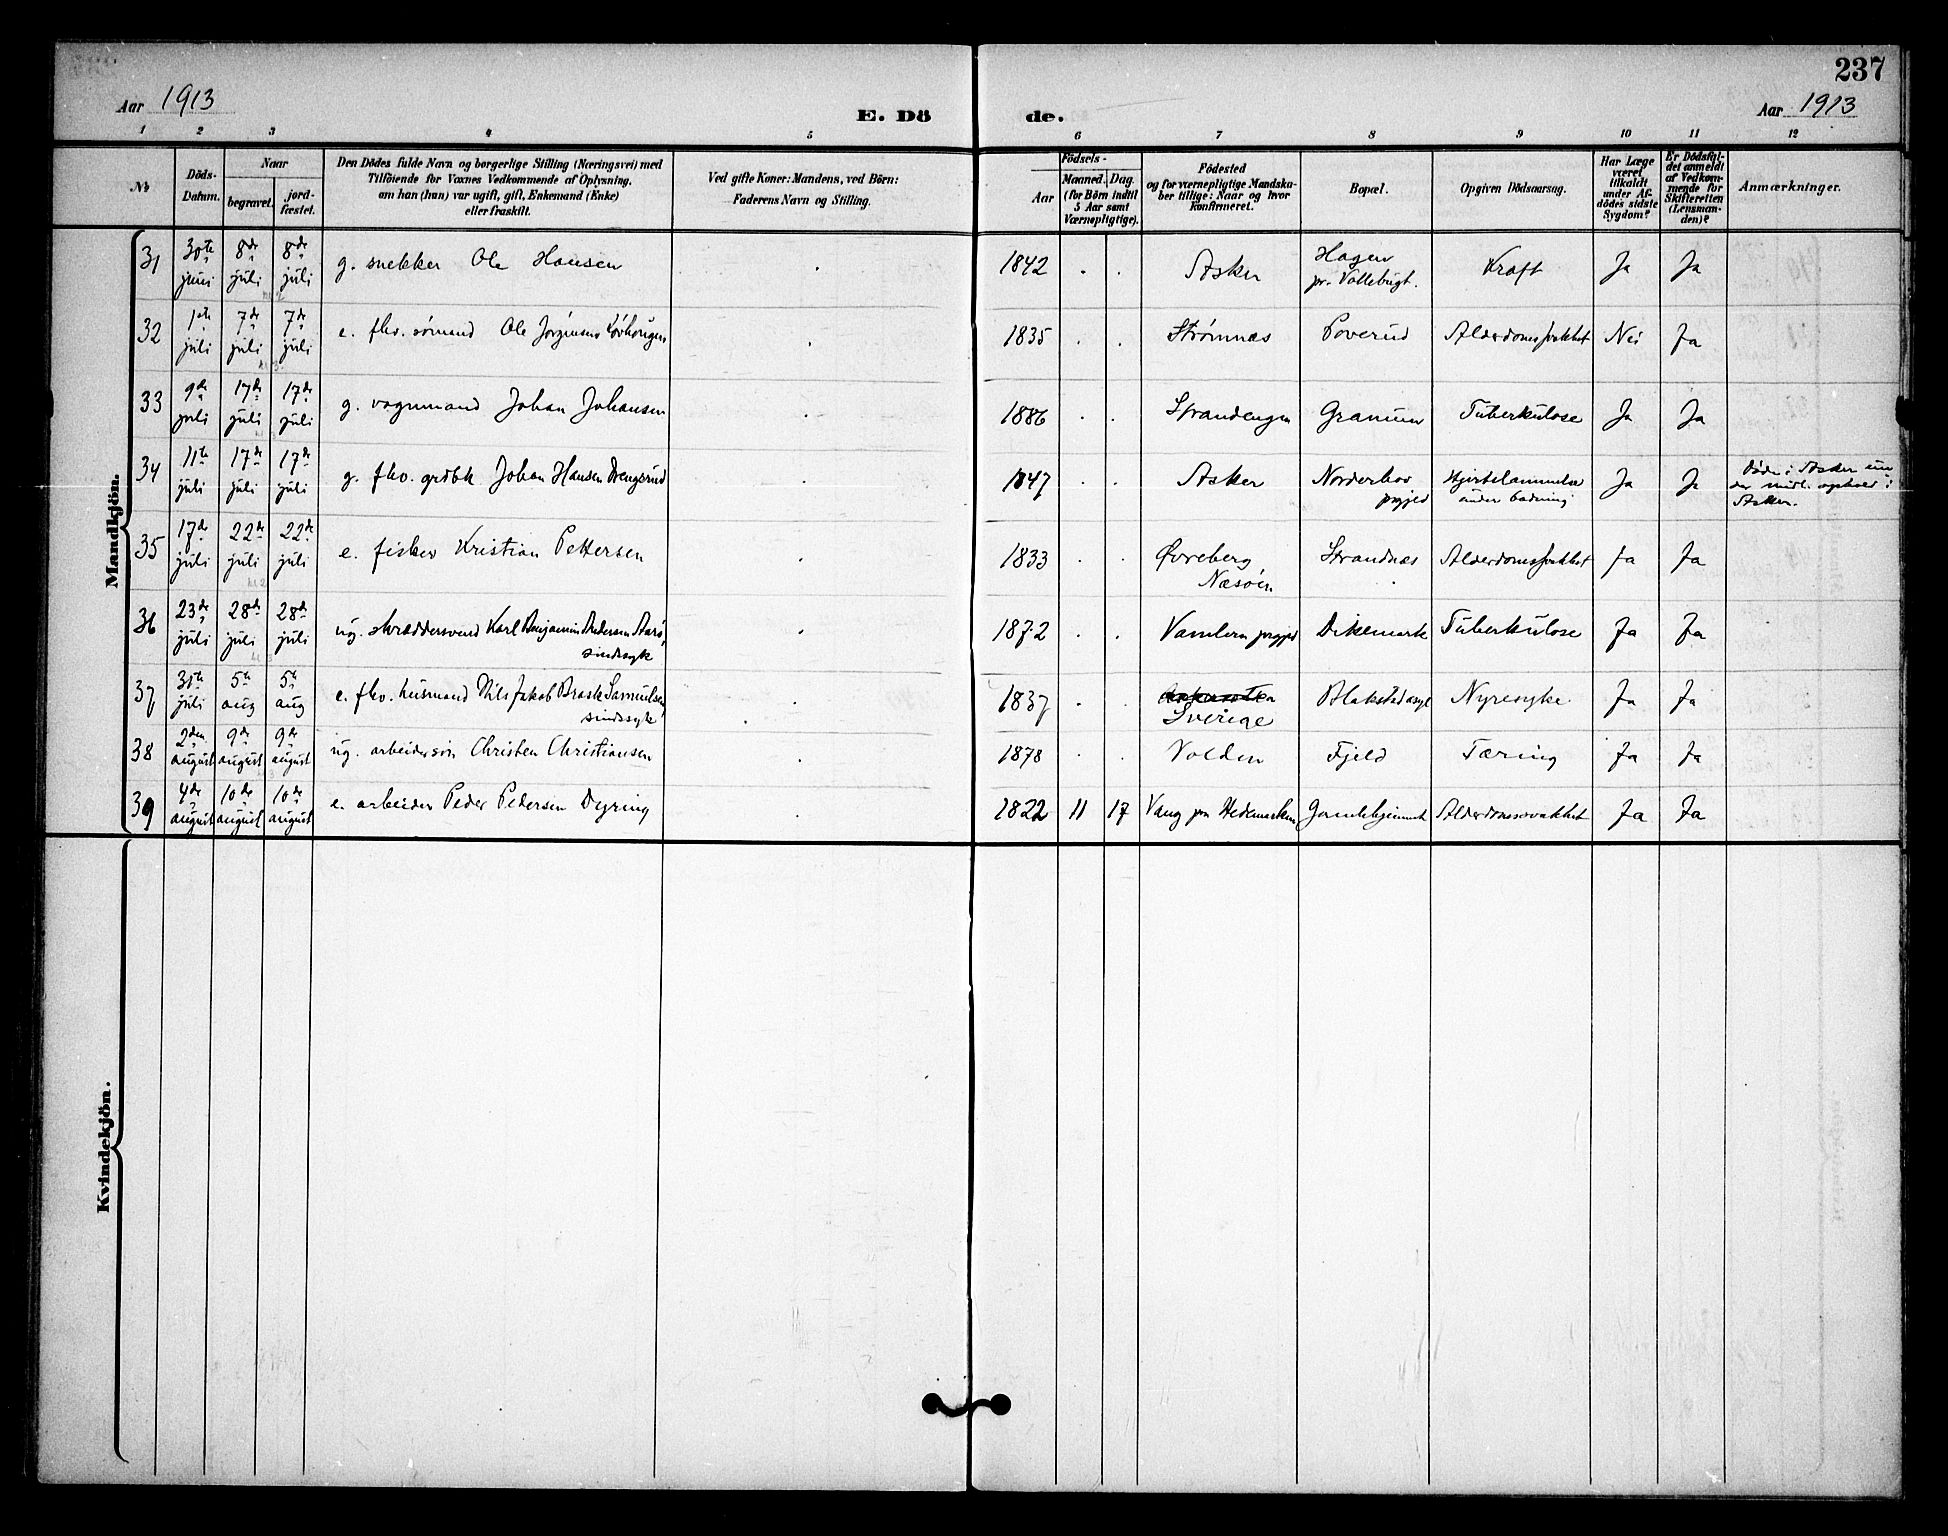 237
Aar 1913
E. Dö
de.
Aar 1913
1 2 3 4 5 6 7 8 9 10 11 12
No
Döds-
Datum.
Naar
begravet.
jord-
fæstet.
Den Dödes fulde Navn og borgerlige Stilling (Næringsvei) med
Tilföiende for Voxnes Vedkommende af Oplysning,
om han (hun) var ugift, gift, Enkemand (Enke)
eller fraskilt.
Ved gifte Koner: Mandens, ved Börn:
Faderens Navn og Stilling.
Födsels-
Aar
Maaned. Dag.
(for Börn indtil
5 Aar samt
Værnepligtige).
Födested
og for værnepligtige Mandska-
ber tillige: Naar og hvor
Konfirmeret.
Bopæl.
Opgiven Dödsaarsag.
Har Læge
været
tilkaldt
under Af-
dödes sidste
Sygdom?
Er Dödsfal-
det anmeldt
af Vedkom-
mende for
Skifteretten
(Lensman-
den)?
Anmærkninger.
Mandkjön.
31 30te juni 8de juli 8de juli g. snekker Ole Hansen 1842 Asker Hagen
pr. Vollebugt. Kraft Ja Ja
32 1ste juli 7de juli 7de juli e. fhv. sömand Ole Jörginsen 1835 Strömnæs Poverud Alderdomssvakhet Nei Ja
33 9de juli 17de juli 17de juli g. vognmand Johan Johansen 1886 Strandengen Granum Tuberkulose Ja Ja
34 11te juli 17de juli 17de juli g. fhv. grdbk Johan Hansen Drengsrud 1847 Asker Norderhov
prgjed Hjertelammelse
under badning Ja Ja Döde i Asker un
der midl. ophold i
Asker.
35 17de juli 22de juli 22de juli e. fisker Kristian Pettersen 1833 Övreberg
Næsöen Strandnæs Alderdomssvakhet Ja Ja
36 23de juli 28de juli 28de juli ug. skræddersvend Karl Benjamin Andersen
sindssyk 1872 prgjed Dikemark Tuberkulose Ja Ja
37 31te juli 5te aug 5te aug e. fhv. husmand Nils Jakob Samuelsen
sindssyk 1837 Sverige Blakstad asyl Nyresyke Ja Ja
38 2den august 9de august 9de august ug. arbeidersön Christen Christiansen 1878 Volden Fjeld Tæring Ja Ja
39 4de august 10de august 10de august e. arbeider Peder Pedersen Dyring 1822 11 17 Vang paa Hedemarken Gamlehjemmet Alderdomssvakhet Ja Ja
Kvindekjön.